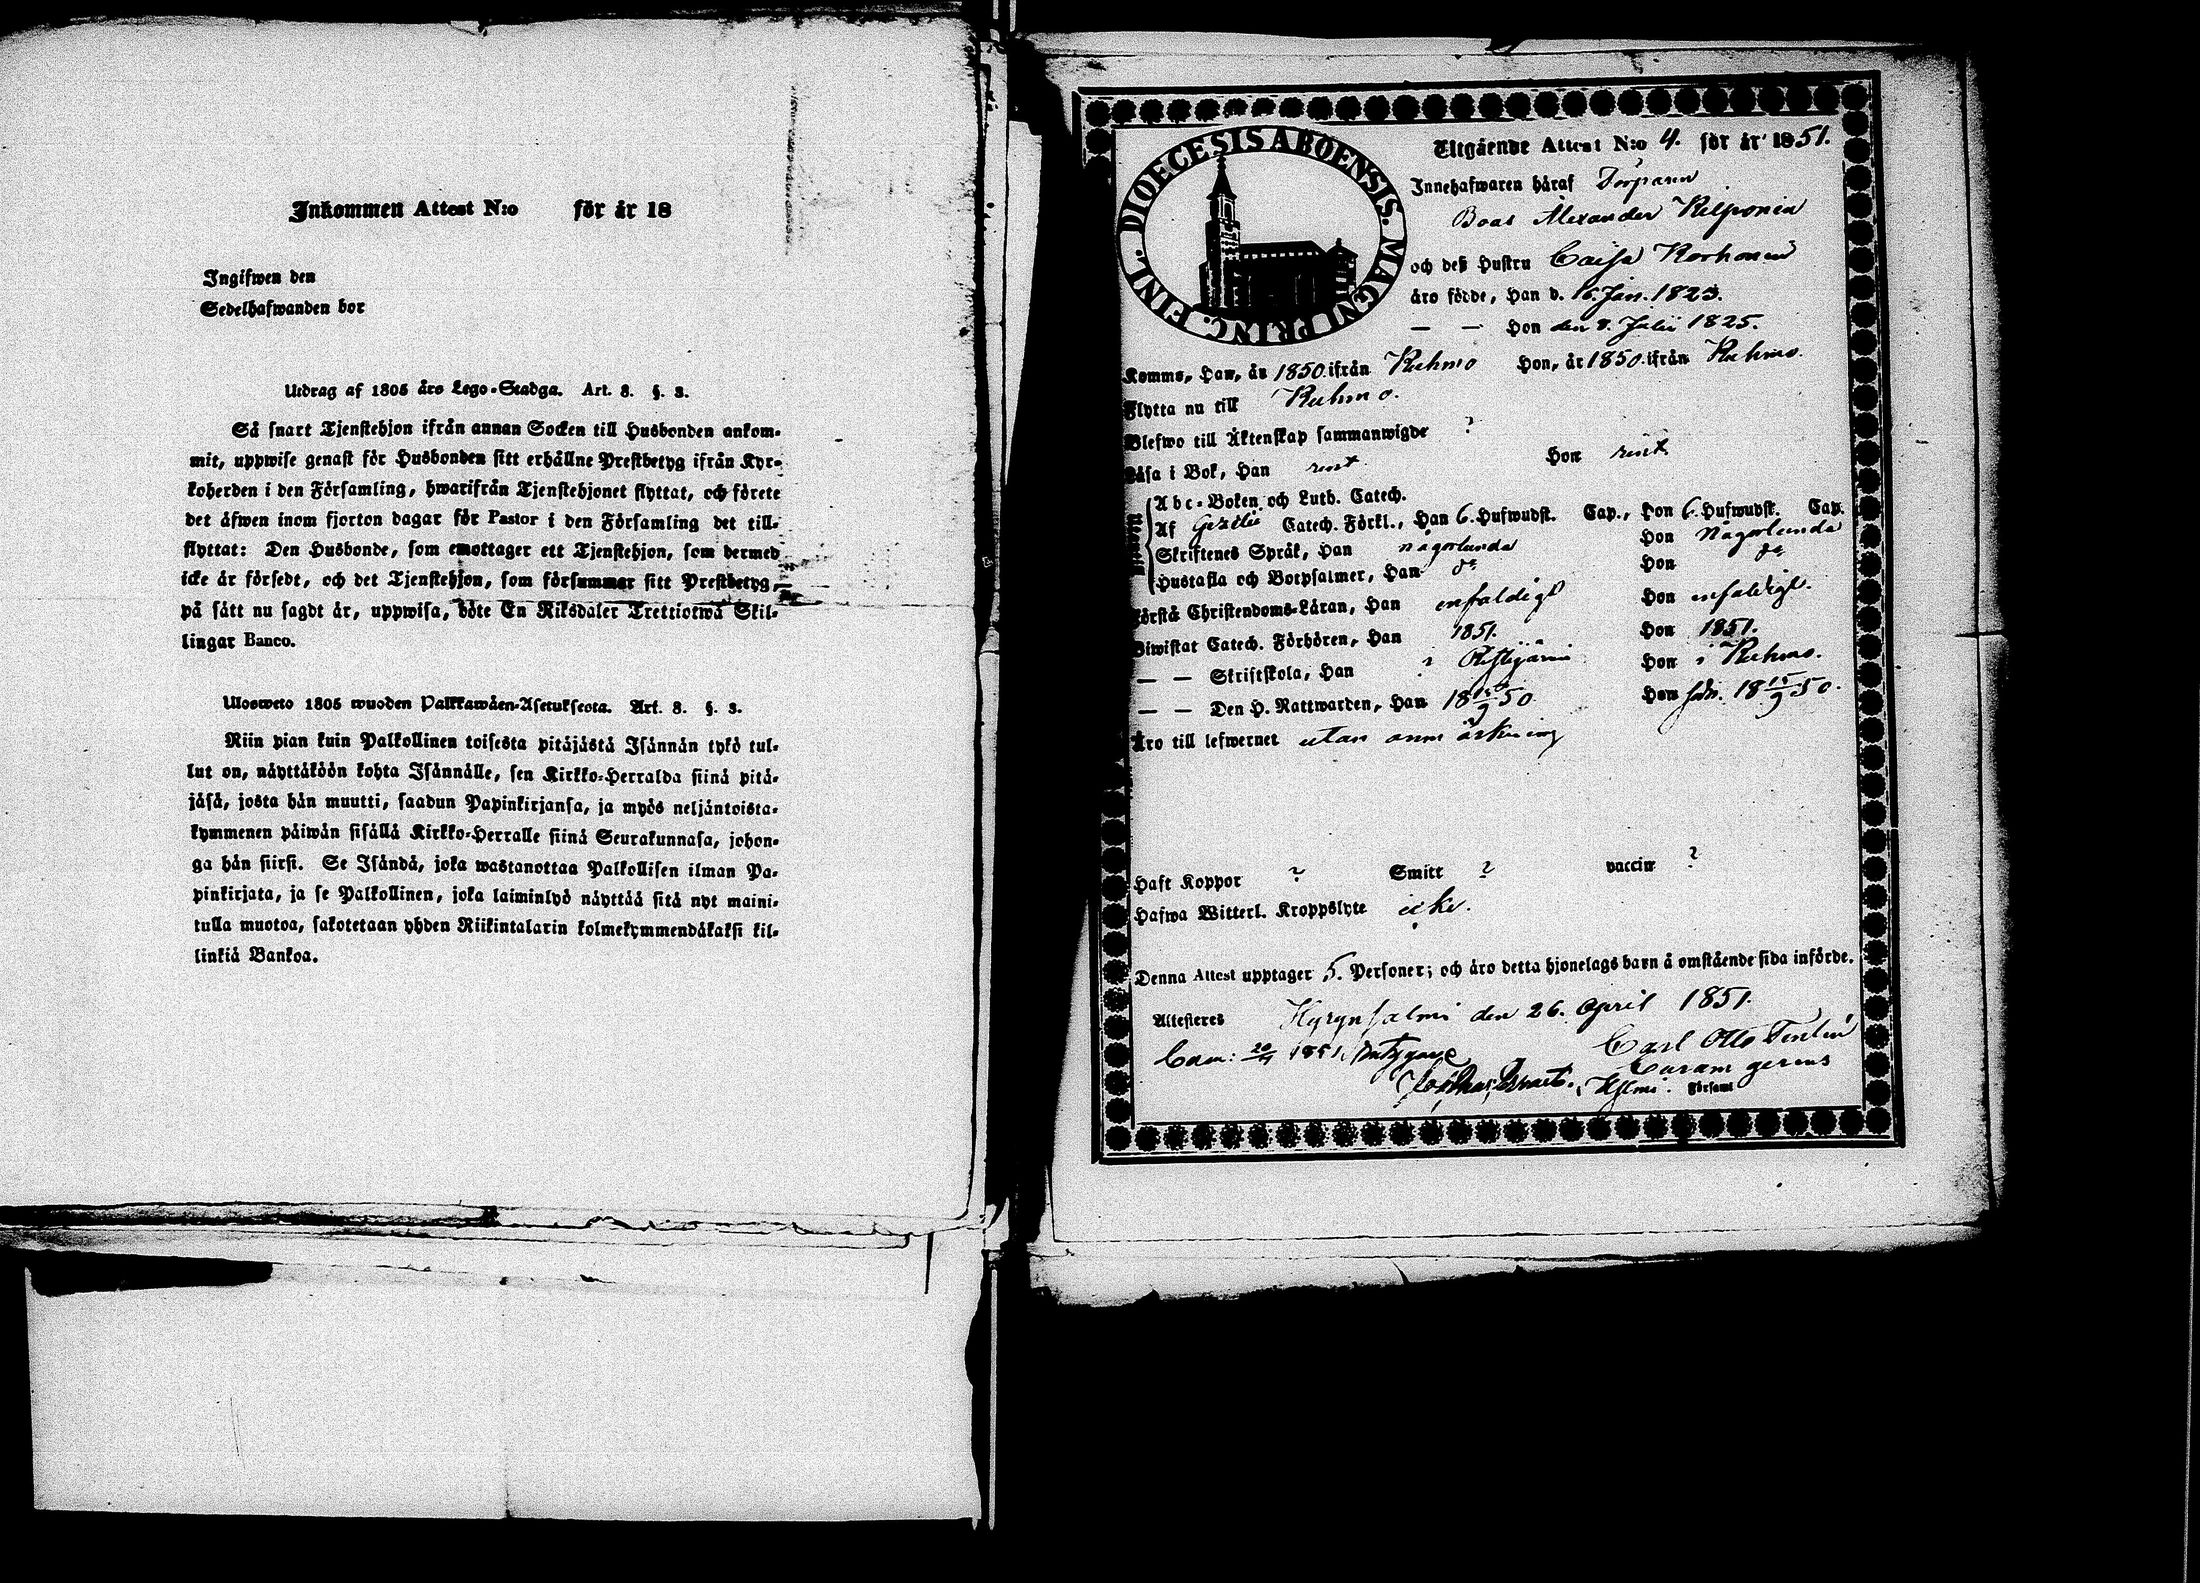 Inkommen Attest N:o för år 18
Ingifwen den
Sedelhafwanden bor
Utdrag af 1805 års Lego-Stadga. Art. 8. §. 3.
Så snart Tjenstehjon ifrån annan Socken till Husbonden ankom-
mit, uppwise genast för Husbonden sitt erhållne Prestbetyg ifrån Kyr-
koherden i den Församling, hwarifrån Tjenstehjonet flyttat, och förete
det äfwen inom fjorton dagar för Pastor i den Församling det till-
flyttat: Den Husbonde, som emottager ett Tjenstehjon, som dermed
icke är försedt, och det Tjenstehjon, som försummar sitt Prestbetyg,
på sätt nu sagdt är, uppwisa, böte En Riksdaler Trettiotwå Skil-
lingar Banco.
Ulosweto 1805 wuoden Palkkawäen-Asetuksesta. Art. 8. §. 3.
Niin pian kuin Palkollinen toisesta pitäjästä Isännän tykö tul-
lut on, näyttäköön kohta Isännälle, sen Kirkko-Herralda siinä pitä-
jäsä, josta hän muutti, saadun Papinkirjansa, ja myös neljäntoista-
kymmenen päiwän sisällä Kirkko-Herralle siinä Seurakunnasa, johon-
ga hän siirsi. Se Isändä, joka wastanottaa Palkollisen ilman Pa-
pinkirjata, ja se Palkollinen, joka laiminlyö näyttää sitä nyt maini-
tulla muotoa, sakotetaan yhden Riikintalarin kolmekymmendäkaksi kil-
linkiä Bankoa.
DIOECESIS ABOENSIS. MAGNI PRINC. FINL.
Utgående Attest N:o 4. för år 1851.
Innehafwaren häraf Torparen
Boas Alexander Kilponen
och deß Hustru Caisa Korhonen
äro födde, Han d. 16 Jan. 1823.
— — Hon den 8. Julii 1825.
Komme, Han, år 1850 ifrån Kuhmo Hon, år 1850 ifrån Kuhmo.
Flytta nu till Kuhmo.
Blefwo till Äktenskap sammanwigde ?
Läsa i Bok, Han rent Hon rent
Abc-Boken och Luth. Catech.
Af Gezelii Catech. Förkl., Han 6. Hufwudst. Cap., Hon 6. Hufwudst. Cap.
Skriftenes Språk, Han någorlunda Hon Någorlunda
Hustafla och Botpsalmer, Han do Hon do
Förstå Christendoms-Läran, Han enfaldigt Hon enfaldigt.
Biwistat Catech. Förhören, Han 1851. Hon 1851.
— — Skriftskola, Han i Ristijärvi Hon i Kuhmo.
— — Den H. Nattwarden, Han 18 15/9 50 Hon 18 15/9 50.
Äro till lefwernet utan anmärkning
Haft Koppor ? Smitt ? vaccin ?
Hafwa Witterl. Kroppslyte icke.
Denna Attest upptager 5. Personer; och äro detta hjonelags barn å omstående sida införde.
Attesteres Hyrynsalmi den 26. April 1851.
Carl Otto Tenlén
Curam gerens
H:salmi. Församl.